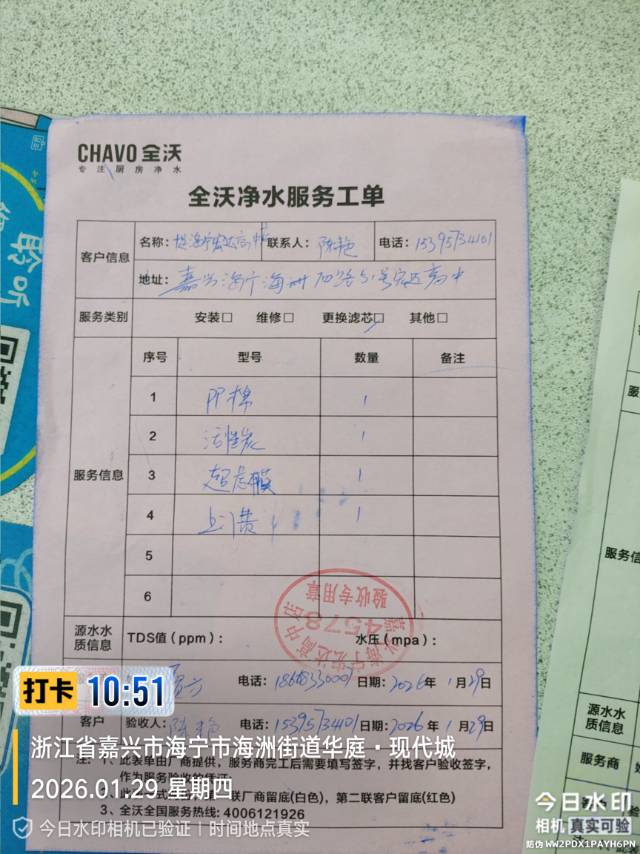 CHAVO 全沃
专注厨房净水
全沃净水服务工单
客户信息
名称: 海宁宏达高中 联系人: 陈艳 电话: 15395734401
地址: 嘉兴海宁海州 路5号宏达高中
服务类别 安装□ 维修□ 更换滤芯□ 其他□
服务信息
序号 型号 数量 备注
1 PP棉 1
2 活性炭 1
3 超滤膜 1
4 上门费 1
5
6
源水水质信息 TDS值(ppm): 水压(mpa):
海宁宏达高中
4578
验收专用章
电话: 日期: 2026年1月29日
客户 验收人: 陈艳 电话: 15395734401 日期: 2026年1月29日
注: 1、此表单由厂商提供,服务商完工后需要填写签字,并找客户验收签字,
作为服务验收的凭证
联厂商留底(白色),第二联客户留底(红色)
3、全沃全国服务热线: 4006121926
打卡 10:51
浙江省嘉兴市海宁市海洲街道华庭·现代城
2026.01.29 星期四
今日水印相机已验证 | 时间地点真实
聆听
服务信息
源水水质信息
服务商
今日水印
相机 真实可验
防伪 WW2PDX1PAYH6PN